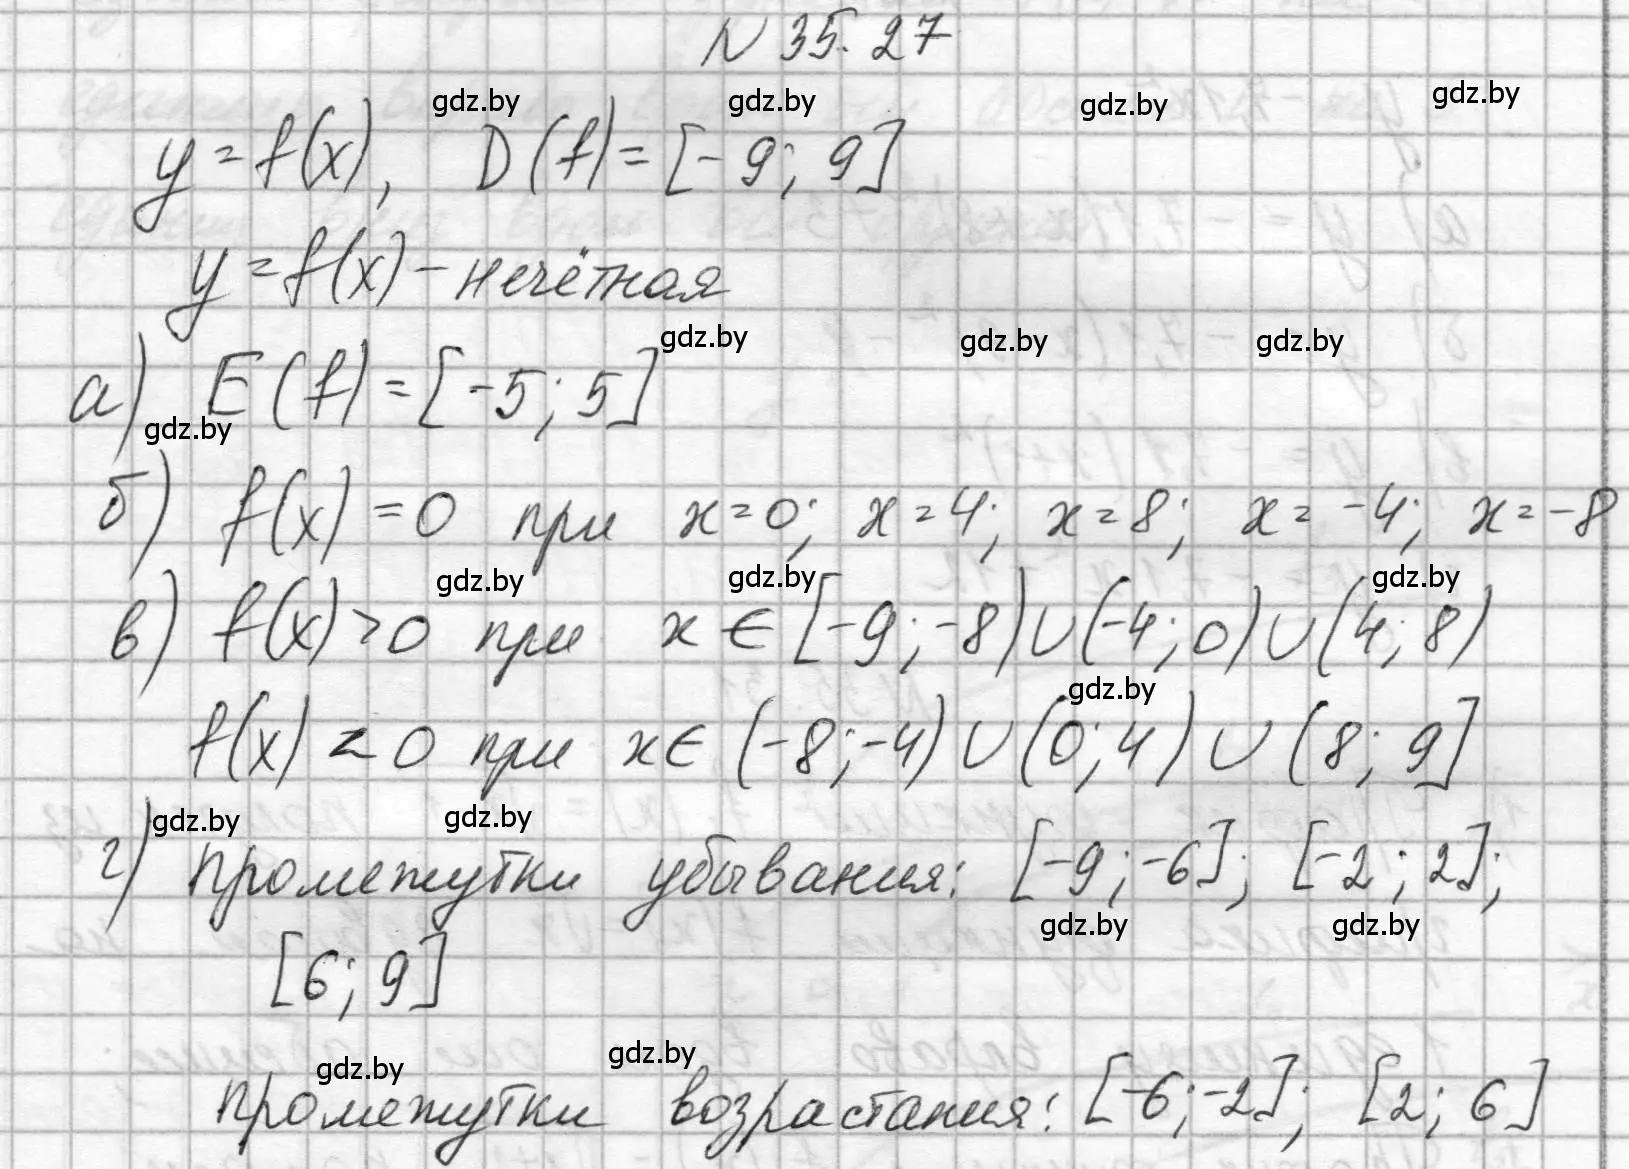 N 35.27
gdz.by gdz.by gdz.by gdz.by
y = f(x), D(f) = [-9; 9]
y = f(x) – нечётная
gdz.by gdz.by gdz.by
а) E(f) = [-5; 5]
gdz.by
б) f(x) = 0 при x = 0; x = 4; x = 8; x = -4; x = -8
gdz.by gdz.by gdz.by
в) f(x) > 0 при x ∈ [-9; -8) ∪ (-4; 0) ∪ (4; 8)
gdz.by
f(x) < 0 при x ∈ (-8; -4) ∪ (0; 4) ∪ (8; 9]
gdz.by gdz.by
г) промежутки убывания: [-9; -6]; [-2; 2];
gdz.by gdz.by
[6; 9]
gdz.by gdz.by
промежутки возрастания: [-6; -2]; [2; 6]